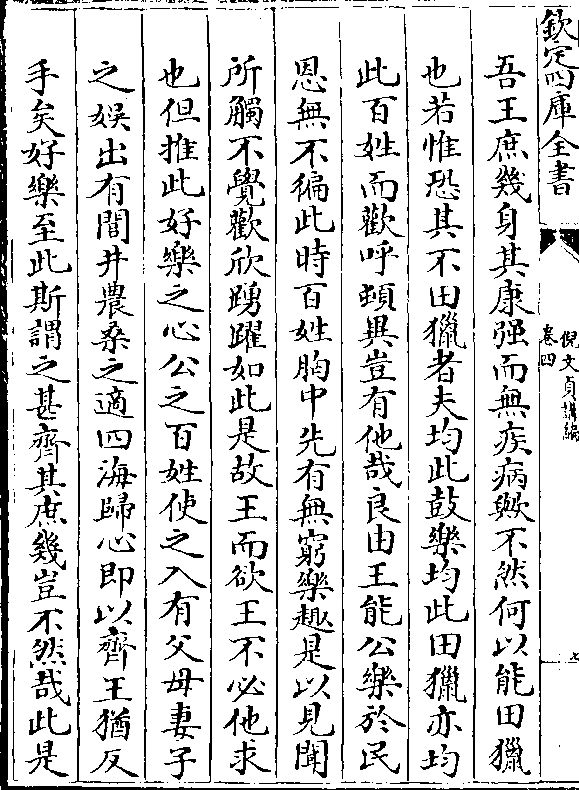 欽定四庫全書
倪文貞講編
卷四
七
吾王庶幾身其康强而無疾病歟不然何以能田獵
也若惟恐其不田獵者夫均此鼓樂均此田獵亦均
此百姓而歡呼頓異豈有他哉良由王能公樂於民
恩無不徧此時百姓胸中先有無窮樂趣是以見聞
所觸不覺歡欣踴躍如此是故王而欲王不必他求
也但推此好樂之心公之百姓使之入有父母妻子
之娱出有閭井農桑之適四海歸心即以齊王猶反
手矣好樂至此斯謂之甚齊其庶幾豈不然哉此是